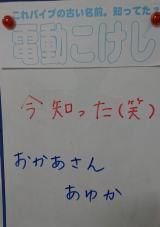 これバイブの古い名前。知ってた?
電動こけし
今知った(笑)
おかあさん
あゆか